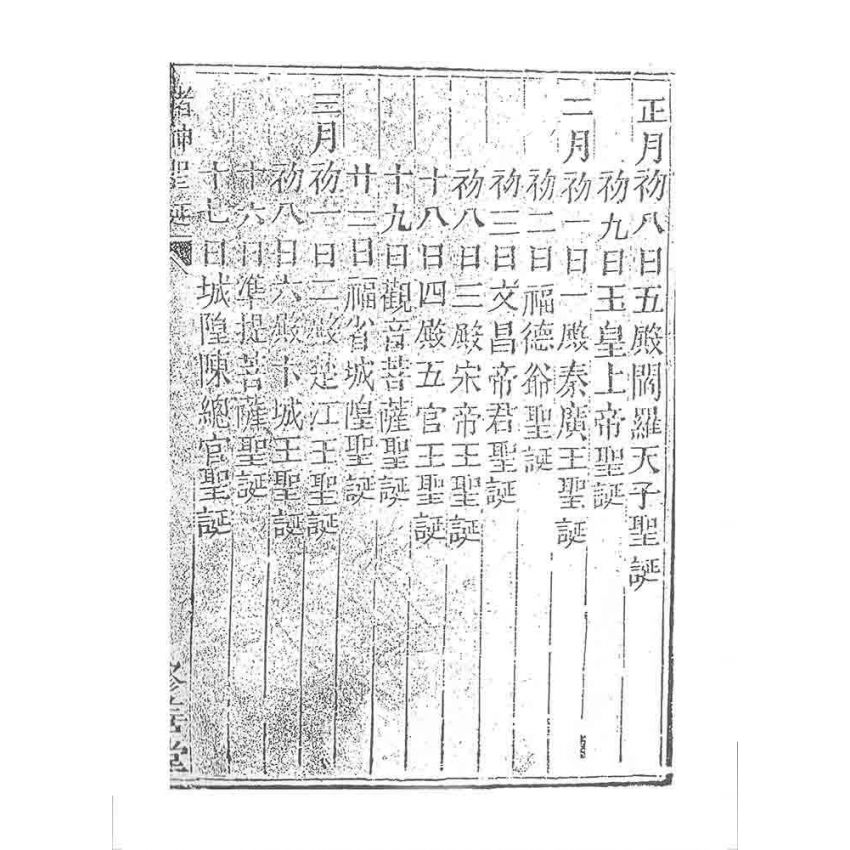 正月初八日五殿閻羅天子聖誕
初九日玉皇上帝聖誕
二月初一日一殿秦廣王聖誕
初二日福德爺聖誕
初三日文昌帝君聖誕
初八日三殿宋帝王聖誕
十八日四殿五官王聖誕
十九日觀音菩薩聖誕
廿二日福省城隍聖誕
三月初一日二殿楚江王聖誕
初八日六殿卞城王聖誕
十六日準提菩薩聖誕
十七日城隍陳總官聖誕
諸神聖誕
善堂